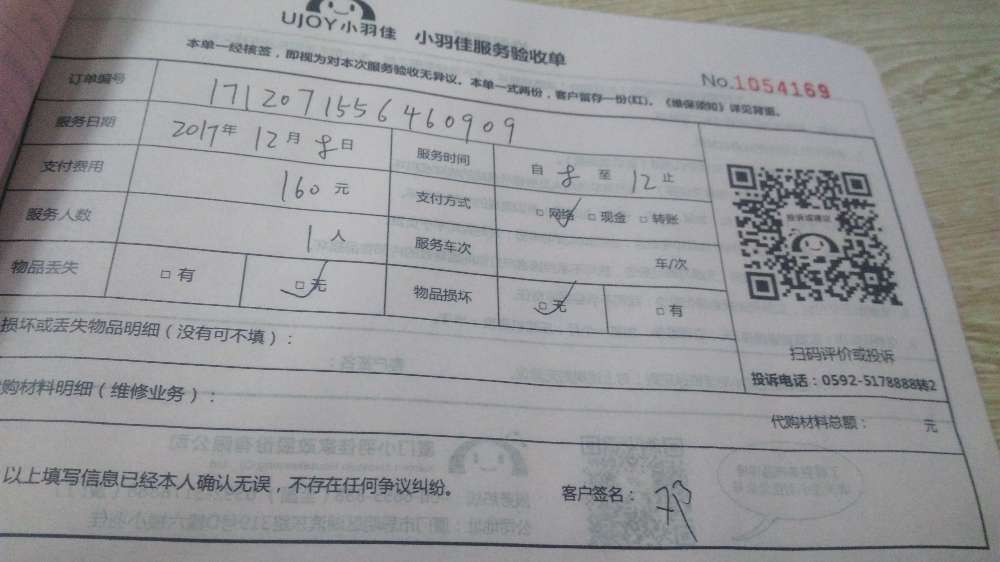 UJOY小羽佳 小羽佳服务验收单
本单一经核签，即视为对本次服务验收无异议。本单一式两份，客户留存一份(红)。《维保须知》详见背面。
No.1054169
订单编号 171207155646 0909
服务日期 2017年 12月 8日 服务时间 自 8 至 12 止
支付费用 160元 支付方式 □网络 □现金 □转账
服务人数 1人 服务车次 车/次
物品丢失 □有 □无 物品损坏 □无 □有
投诉或建议
扫码评价或投诉
投诉电话：0592-5178888转2
损坏或丢失物品明细（没有可不填）：
购材料明细（维修业务）：
代购材料总额： 元
以上填写信息已经本人确认无误，不存在任何争议纠纷。
客户签名：